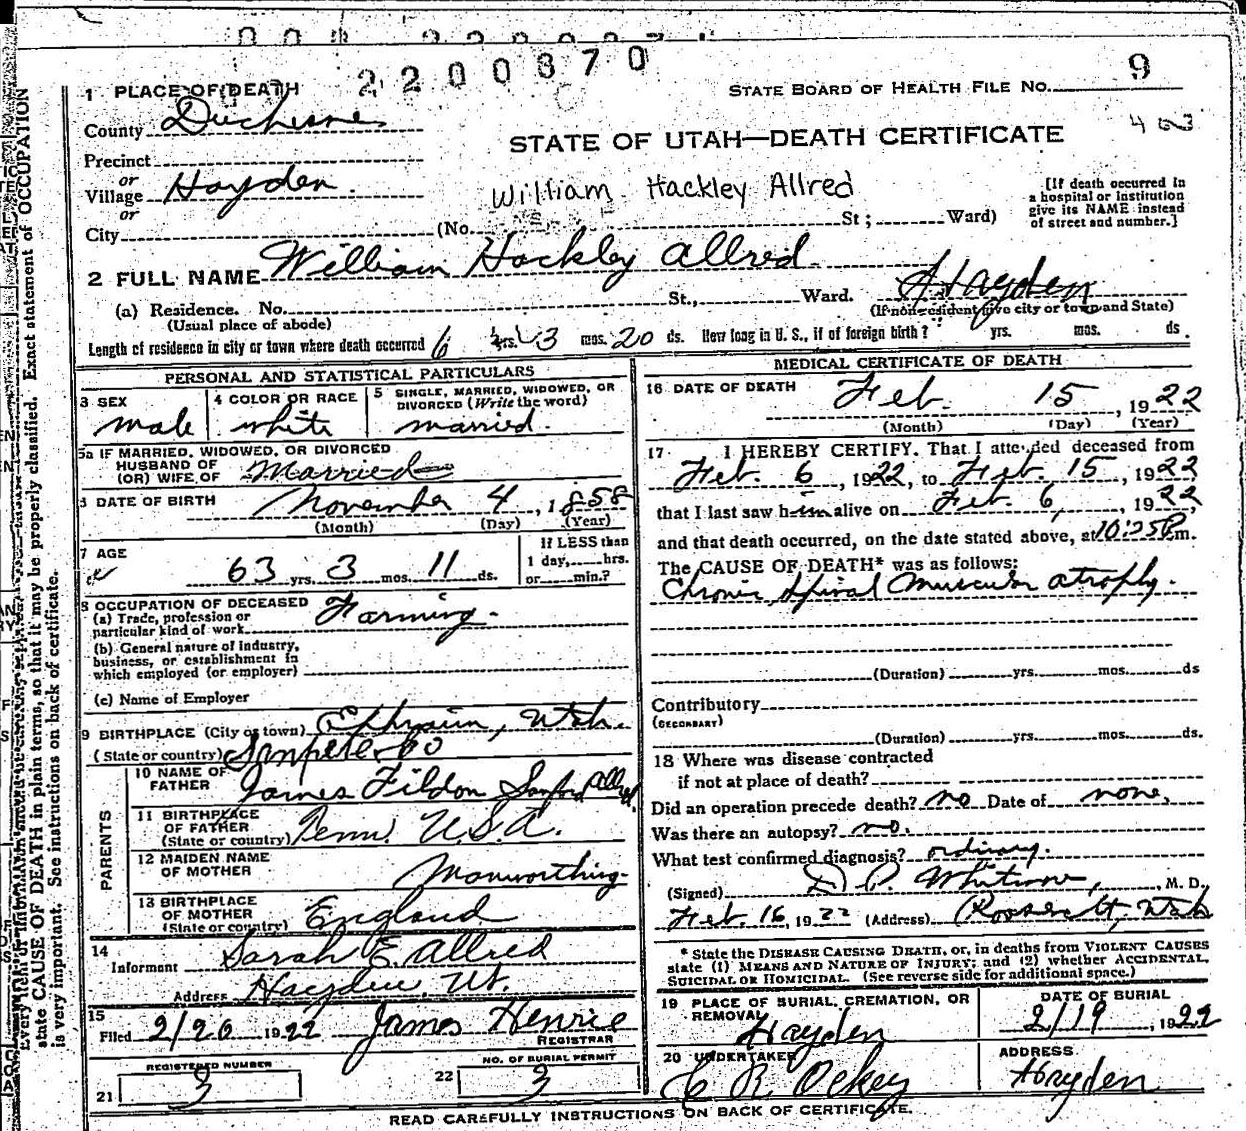 2200370
9
1 PLACE OF DEATH
STATE BOARD OF HEALTH FILE NO.
County Duchesne
STATE OF UTAH—DEATH CERTIFICATE
Precinct
or
Village Hayden.
William Hackley Allred
[If death occurred in a hospital or institution give its NAME instead of street and number.]
or
City (No. St; Ward)
2 FULL NAME William Hackley Allred
(a) Residence. No. St., Ward. Hayden
(Usual place of abode) (If non-resident give city or town and State)
Length of residence in city or town where death occurred 6 yrs. 3 mos. 20 ds. How long in U. S., if of foreign birth? yrs. mos. ds.
PERSONAL AND STATISTICAL PARTICULARS
3 SEX
male
4 COLOR OR RACE
white
5 SINGLE, MARRIED, WIDOWED, OR DIVORCED (Write the word)
married.
5a IF MARRIED, WIDOWED, OR DIVORCED
HUSBAND OF
(OR) WIFE OF Married
6 DATE OF BIRTH November 4, 1858
(Month) (Day) (Year)
7 AGE
63 yrs. 3 mos. 11 ds.
If LESS than
1 day, hrs.
or min.?
8 OCCUPATION OF DECEASED
(a) Trade, profession or
particular kind of work Farming.
(b) General nature of industry,
business, or establishment in
which employed (or employer)
(c) Name of Employer
9 BIRTHPLACE (City or town) Ephraim, Utah.
(State or country) Sanpete Co
PARENTS
10 NAME OF
FATHER James Tildon Sanford Allred
11 BIRTHPLACE
OF FATHER
(State or country) Penn. U.S.A.
12 MAIDEN NAME
OF MOTHER Manworthing
13 BIRTHPLACE
OF MOTHER
(State or country) England
14
Informant Sarah E. Allred
Address Hayden, Ut.
15
Filed 2/20 1922 James Henrie
REGISTRAR
REGISTERED NUMBER
21 3
NO. OF BURIAL PERMIT
22 3
MEDICAL CERTIFICATE OF DEATH
16 DATE OF DEATH Feb. 15, 1922
(Month) (Day) (Year)
17 I HEREBY CERTIFY. That I attended deceased from
Feb. 6, 1922, to Feb. 15, 1922
that I last saw him alive on Feb 6, 1922
and that death occurred, on the date stated above, at 10:25 P.m.
The CAUSE OF DEATH* was as follows:
Chronic Spinal Muscular atrophy.
(Duration) yrs. mos. ds
Contributory
(SECONDARY)
(Duration) yrs. mos. ds.
18 Where was disease contracted
if not at place of death?
Did an operation precede death? no Date of none,
Was there an autopsy? no.
What test confirmed diagnosis? ordinary.
(Signed) , M. D.
Feb. 16, 1922 (Address) Roosevelt, Utah
* State the DISEASE CAUSING DEATH, or, in deaths from VIOLENT CAUSES
state (1) MEANS AND NATURE OF INJURY; and (2) whether ACCIDENTAL,
SUICIDAL OR HOMICIDAL. (See reverse side for additional space.)
19 PLACE OF BURIAL, CREMATION, OR
REMOVAL
Hayden
DATE OF BURIAL
2/19, 1922
20 UNDERTAKER
ADDRESS
Hayden
READ CAREFULLY INSTRUCTIONS ON BACK OF CERTIFICATE.
state CAUSE OF DEATH in plain terms, so that it may be properly classified. Exact statement of OCCUPATION
is very important. See instructions on back of certificate.